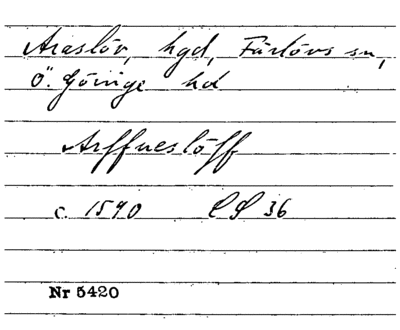 Araslöv, hgd, Färlövs sn,
Ö. Göinge hd
Arffueslöff
c. 1590 LS 36
Nr 5420